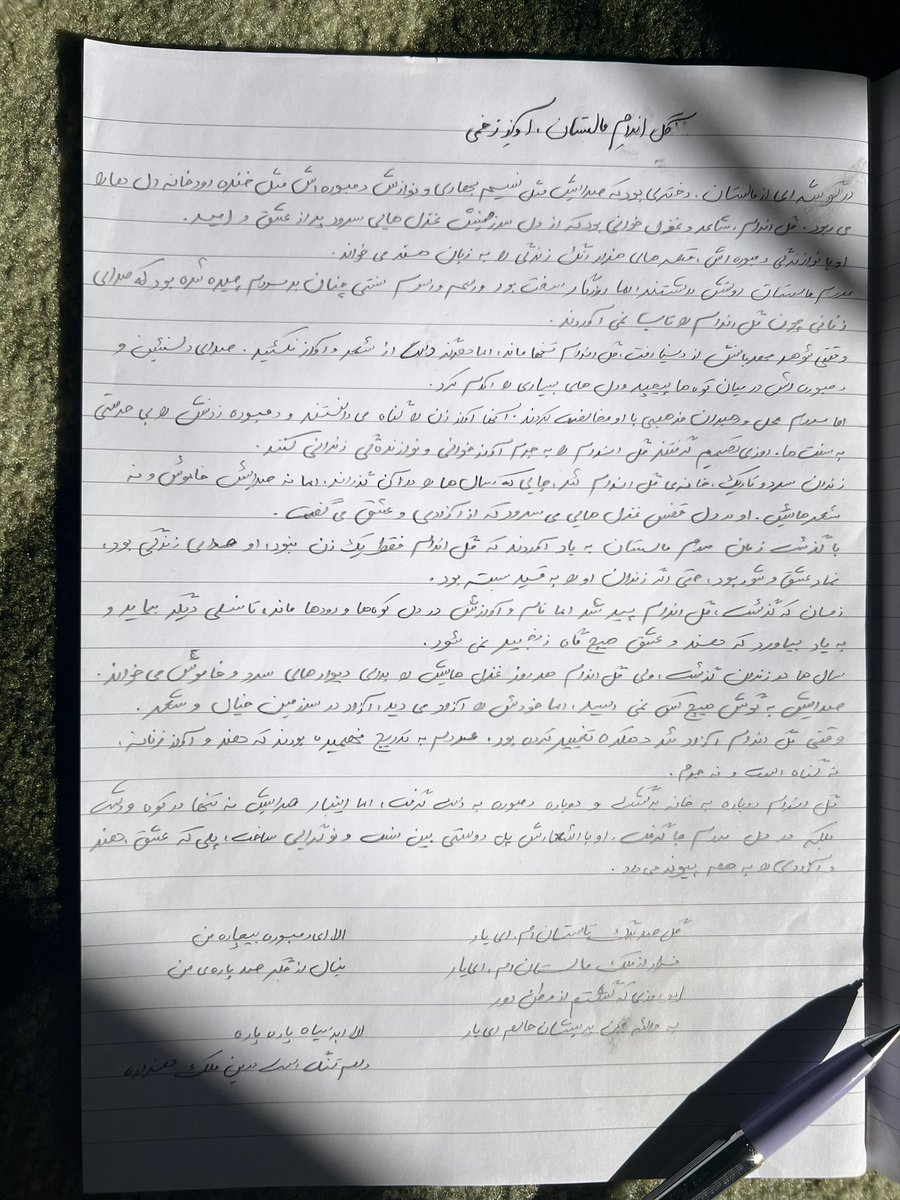 گل اندام مالستان، آوازِ زخمی
در گوشه ای از مالستان، دختری بود که صدایش مثل نسیم بهاری و نوازش دمبوره اش مثل خنده رودخانه دل ها را
می ربود. گل اندام، شاعر و غزل خوانی بود که از دل سرزمینش غزل هایی سرود پر از عشق و امید.
او با نوازندگی دمبوره اش، قصه های هزار رنگ زندگی را به زبان هنر می خواند.
مردم مالستان دوستش داشتند، اما روزگار سخت بود و رسم و رسوم سنتی چنان بر مردم چیره شده بود که صدای
زنانی چون گل اندام را تاب نمی آوردند.
وقتی شوهر مهربانش از دنیا رفت، گل اندام تنها ماند، اما هرگز دست از شعر و آواز نکشید. صدای دلنشین و
دمبوره اش در میان کوه ها پیچید و دل های بسیاری را آرام کرد.
اما مردم محل و رهبران مذهبی با او مخالفت کردند. آنها آواز زن را گناه می دانستند و دمبوره زدنش را بی حرمتی
به سنت ها. روزی تصمیم گرفتند گل اندام را به جرم آوازخوانی و نوازندگی زندانی کنند.
زندان سرد و تاریک، خانه ی گل اندام شد، جایی که سال ها را در آن گذراند، اما نه صدایش خاموش و نه
شعرهایش. او در دل قفس غزل هایی می سرود که از آزادی و عشق می گفت.
با گذشت زمان مردم مالستان به یاد آوردند که گل اندام فقط یک زن نبود، او صدای زندگی بود،
نماد عشق و شور بود، حتی اگر زندان او را به قید بسته بود.
زمان که گذشت، گل اندام پیر شد اما نام و آوازش در دل کوه ها و رودها ماند، تا نسلی دیگر بیاید و
به یاد بیاورد که هنر و عشق هیچ گاه زنجیر نمی شود.
سال ها در زندان گذشت، ولی گل اندام هر روز غزل هایش را برای دیوارهای سرد و خاموش می خواند.
صدایش به گوش هیچ کس نمی رسید، اما خودش را آزاد می دید، آزاد در سرزمین خیال و شعر.
وقتی گل اندام آزاد شد دهکده تغییر کرده بود. مردم به تدریج فهمیده بودند که هنر و آواز زنانه،
نه گناه است و نه جرم.
گل اندام دوباره به خانه برگشت و دوباره دمبوره به دست گرفت، اما اینبار صدایش نه تنها در کوه و دشت
بلکه در دل مردم جا گرفت. او با اشعارش پل دوستی بین سنت و نوگرایی ساخت، پلی که عشق، هنر
و آزادی را به هم پیوند می داد.
گل صد برگ تابستان ام، ای یار الا ای دمبوره بیچاره من
از ملک مالستان ام، ای یار بنال از جگر صد پاره ی من
روزی که گشتم از وطن دور
به والله پریشان حالم ای یار لالا ابر سیاه پاره پاره
دلم تنگ است درین ملک